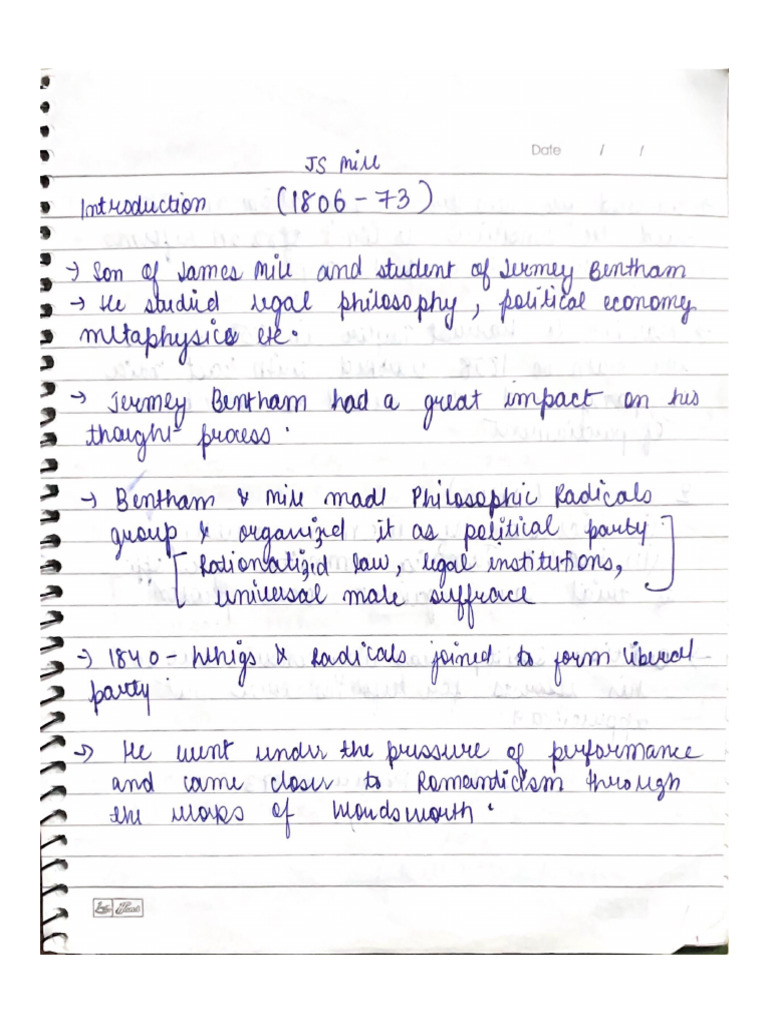 Date / /
JS Mill
Introduction (1806-73)
→ Son of James Mill and student of Jermey Bentham
→ He studied legal philosophy, political economy
metaphysics etc.
→ Jermey Bentham had a great impact on his
thought process.
→ Bentham & Mill made Philosophic Radicals
group & organized it as political party.
[Rationalized law, legal institutions,
universal male suffrace]
→ 1840 - Whigs & Radicals joined to form liberal
party.
→ He went under the pressure of performance
and came closer to Romandicism through
the works of Wordsworth.